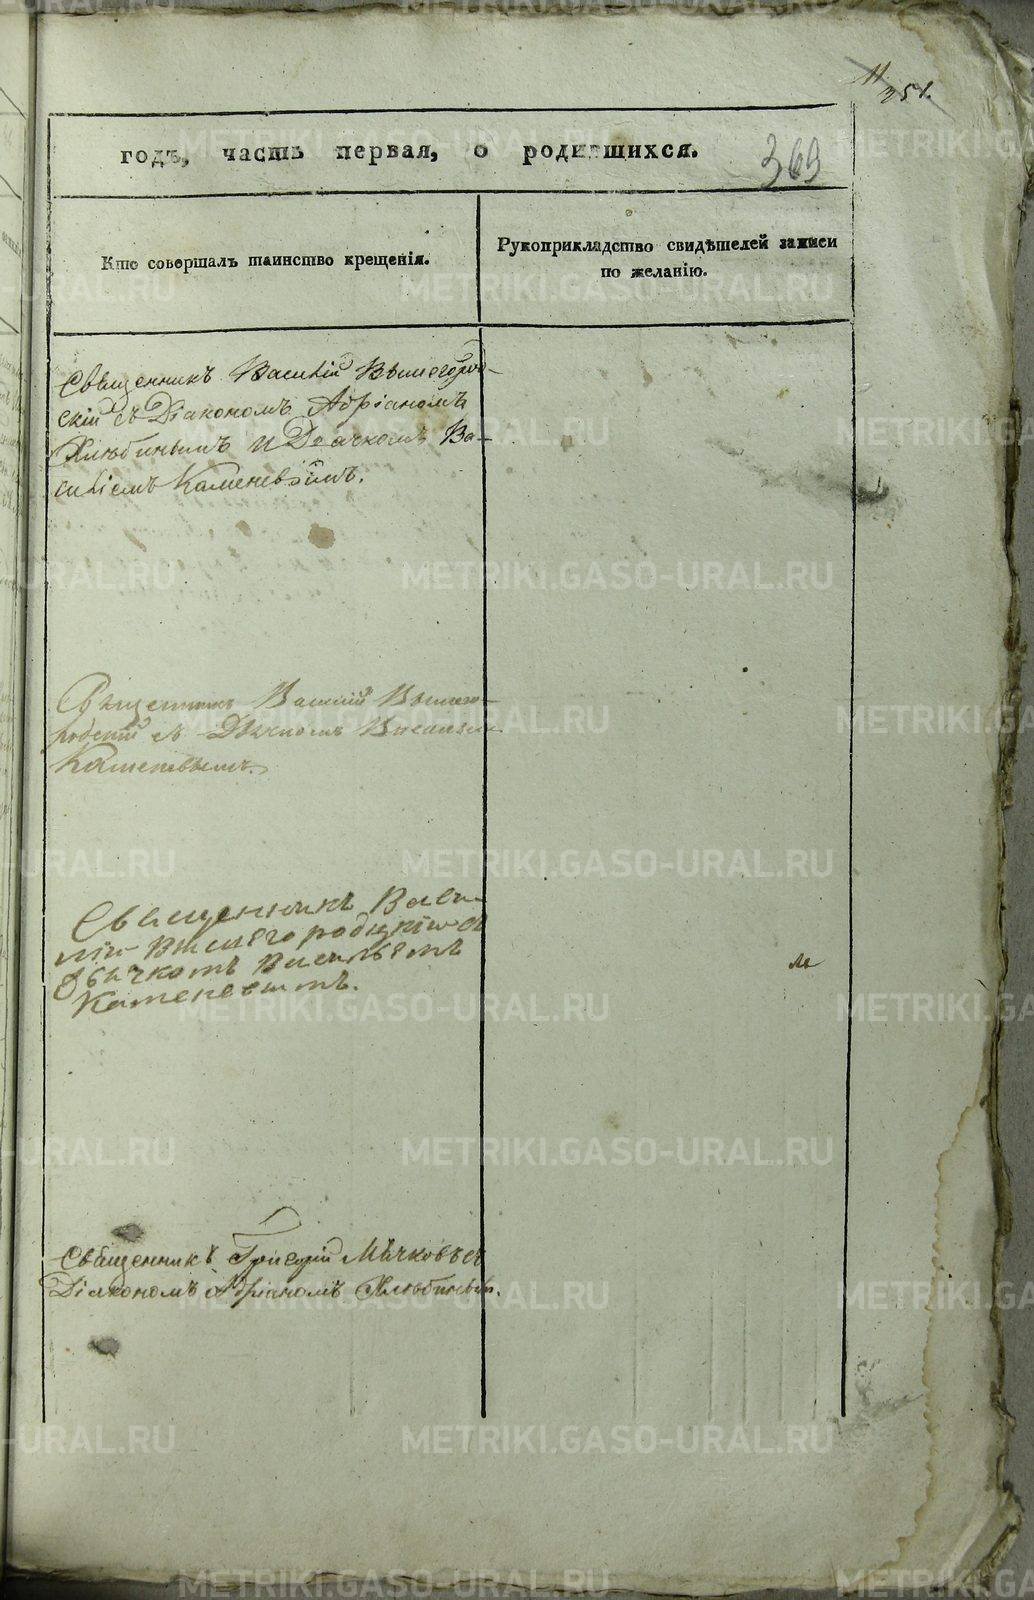 11
351.
годъ, часть первая, о родившихся.
369
Кто совершалъ таинство крещенія.
Рукоприкладство свидѣтелей записи
по желанію.
Священникъ Василій Вышегород-
скій съ Діакономъ Адріаномъ
Хлюбинымъ и Дьячкомъ Ва-
силіемъ Каменевымъ.
Священникъ Василій Вышего-
родскій съ Дьячкомъ Василіем
Каменевымъ.
Священникъ Васи-
лій Вышегородцкій съ
дьячкомъ Васильемъ
Каменевымъ.
Священникъ Григорій Мячковъ съ
Діакономъ Адріаномъ Хлюбинымъ.
METRIKI.GASO-URAL.RU